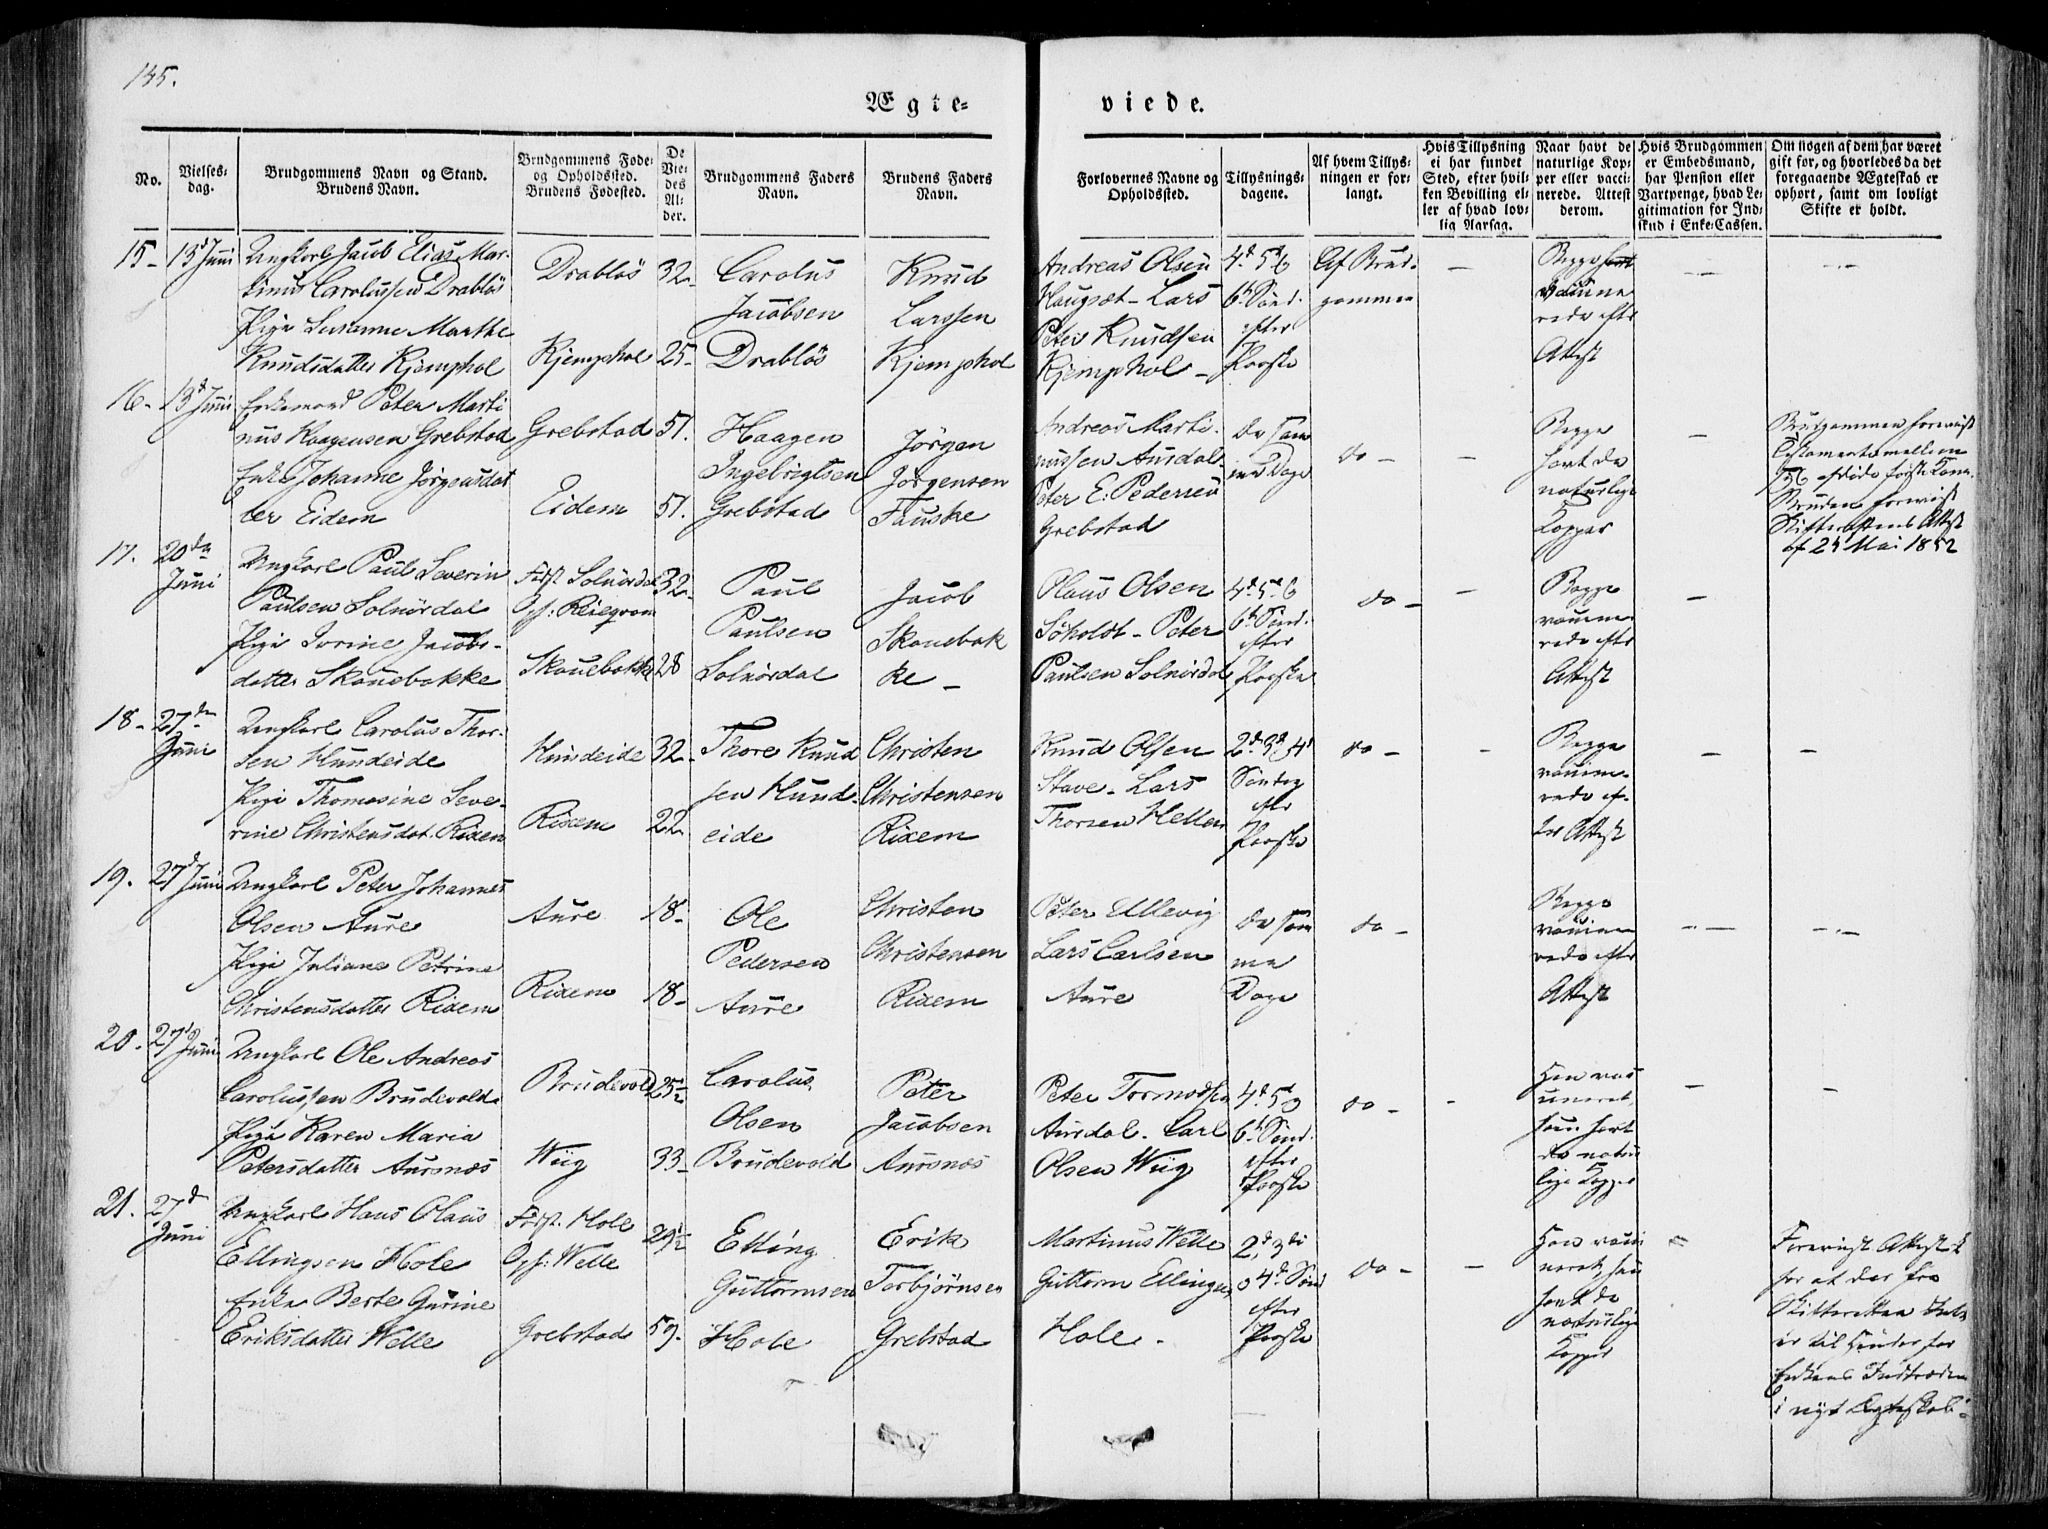 145.
Ægte-
viede.
No.
Vielses-
dag.
Brudgommens Navn og Stand.
Brudens Navn.
Brudgommens Føde-
og Opholdssted.
Brudens Fødested.
De
Vie-
des
Al-
der.
Brudgommens Faders
Navn.
Brudens Faders
Navn.
Forlovernes Navne og
Opholdsted.
Tillysnings-
dagene.
Af hvem Tillys-
ningen er for-
langt.
Hvis Tillysning
ei har fundet
Sted, efter hvil-
ken Bevilling el-
ler af hvad lov-
lig Aarsag.
Naar havt de
naturlige Kop-
per eller vacci-
nerede. Attest
derom.
Hvis Brudgommen
er Embedsmand,
har Pension eller
Vartpenge, hvad Le-
gitimation for Ind-
skud i Enke-Cassen.
Om nogen af dem har været
gift før, og hvorledes da det
foregaaende Ægteskab er
ophørt, samt om lovligt
Skifte er holdt.
15- 13d Juni
Ungkarl Jacob Elias Mar-
tinus Carolussen Drabløs
Pige Susanne Marthe
Knudsdatter Kjemphol
Drabløs
Kjemphol
32-
25-
Carolus
Jacobsen
Drabløs
Knud
Larssen
Kjemphol
Andreas Olsen
Haugset- Lars
Peter Knudsen
Kjemphol -
4d 5t &
6t Sønd.
efter
Paaske
Af Brud-
gommen
-
Begge
vaccine
rede eftr
Attest
-
-
16- 13d Juni
Enkemand Peter Marti
nus Haagensen Grebstad
Enke Johanne Jørgensdat
ter Eidem
Grebstad
Eidem
51.
51.
Haagen
Ingebrigtsen
Grebstad
Jørgen
Jørgensen
Fauske
Andreas Marti-
nussen Aursdal-
Peter E: Pedersen
Grebstad
De sam
me Dage
do -
-
Begge
havt de
naturlige
Kopper
-
Brudgommen foreviist
Testamente mellem
Bruden foreviist
Skifterettens Attest
af 24 Mai 1852
17. 20de
Juni
Ungkarl Paul Severin
Paulsen Solnørdal
Pige Iverine Jacobs-
datter Skouebakke
Født Solnørdal
Skouebakke
32-
28
Paul
Paulsen
Solnørdal
Jacob
Skouebak
ke -
Olaus Olsen
Søholdt- Peter
Paulsen Solnørdal
4d 5t &
6t Sønd.
efter
Paaske
do -
-
Begge
vaccine-
rede eftr
Attest
-
18- 27de
Juni
Ungkarl Carolus Thor-
sen Hundeide
Pige Thomasine Seve-
rine Christensdat. Rixem
Hundeide
Rixem
32-
22
Thore Knud
sen Hund-
eide
Christen
Christensen
Rixem
Knud Olsen
Stave- Lars
Thorsen Hellen
2d 3d & 4d
Søndag
eftr
Paaske
do -
-
Begge
vaccine-
rede ef-
ter Attest
-
-
19. 27d Juni
Ungkarl Peter Johannes
Olsen Aure
Pige Juliane Petrine
Christensdatter Rixem
Aure
Rixem
18-
18-
Ole
Pedersen
Aure
Christen
Christensen
Rixem
Peter Ullevig
Lars Carlsen
Aure
De sam
me
Dage
do -
Begge
vaccine
rede eftr
Attest
-
-
20- 27d Juni
Ungkarl Ole Andreas
Carolussen Brudevold-
Pige Karen Maria
Petersdatter Aursnæs
Brudevold
Wiig
25½
33-
Carolus
Olsen
Brudevold
Peter
Jacobsen
Aursnæs
Peter Tormodsen
Aursdal- Carl
Olsen Wiig
4d 5t &
6t Sønd.
efter
Paaske
do -
-
Han vac
cineret,
hun havt
de natur
lige Kopper
-
-
21. 27d
Juni
Ungkarl Hans Olaus
Ellingsen Hole
Enke Berte Gurine
Eriksdatter Welle
Født. Hole
Oph: Welle
Grebstad
29½
59.
Elling
Guttormsen
Hole
Erik
Torbjørnsen
Grebstad
Martinus Welle
Guttorm Ellingsen
Hole -
2d, 3die
& 4d Sønd
efter
Paaske
do -
-
Han vacci
neret, hun
havt de
naturlige
Kopper
-
Foreviist Attest
for at der fra
Skifteretten Intet
er til Hinder for
Enkens Indtræden
i nyt Ægteskab-